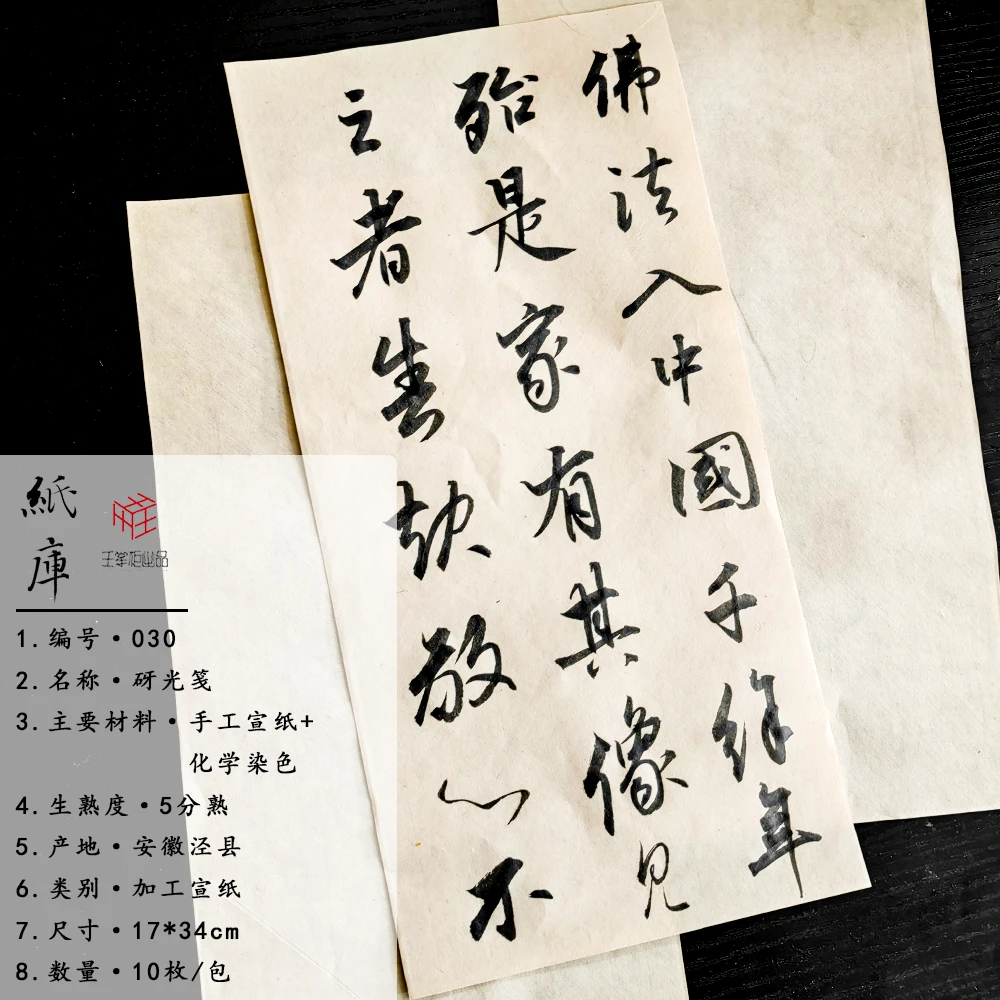 佛法入中國千餘年
殆是家有其像見
之者敬心不
紙庫
1.编号·030
2.名称·砑光笺
3.主要材料·手工宣纸+
化学染色
4.生熟度·5分熟
5.产地·安徽泾县
6.类别·加工宣纸
7.尺寸·17*34cm
8.数量·10枚/包